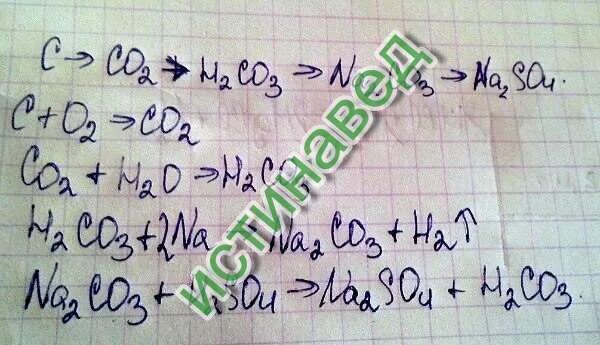 C → CO₂ → H₂CO₃ → Na₂CO₃ → Na₂SO₄.
C + O₂ → CO₂
CO₂ + H₂O → H₂CO₃
H₂CO₃ + 2Na → Na₂CO₃ + H₂↑
Na₂CO₃ + H₂SO₄ → Na₂SO₄ + H₂CO₃.
ИСТИНАВЕД